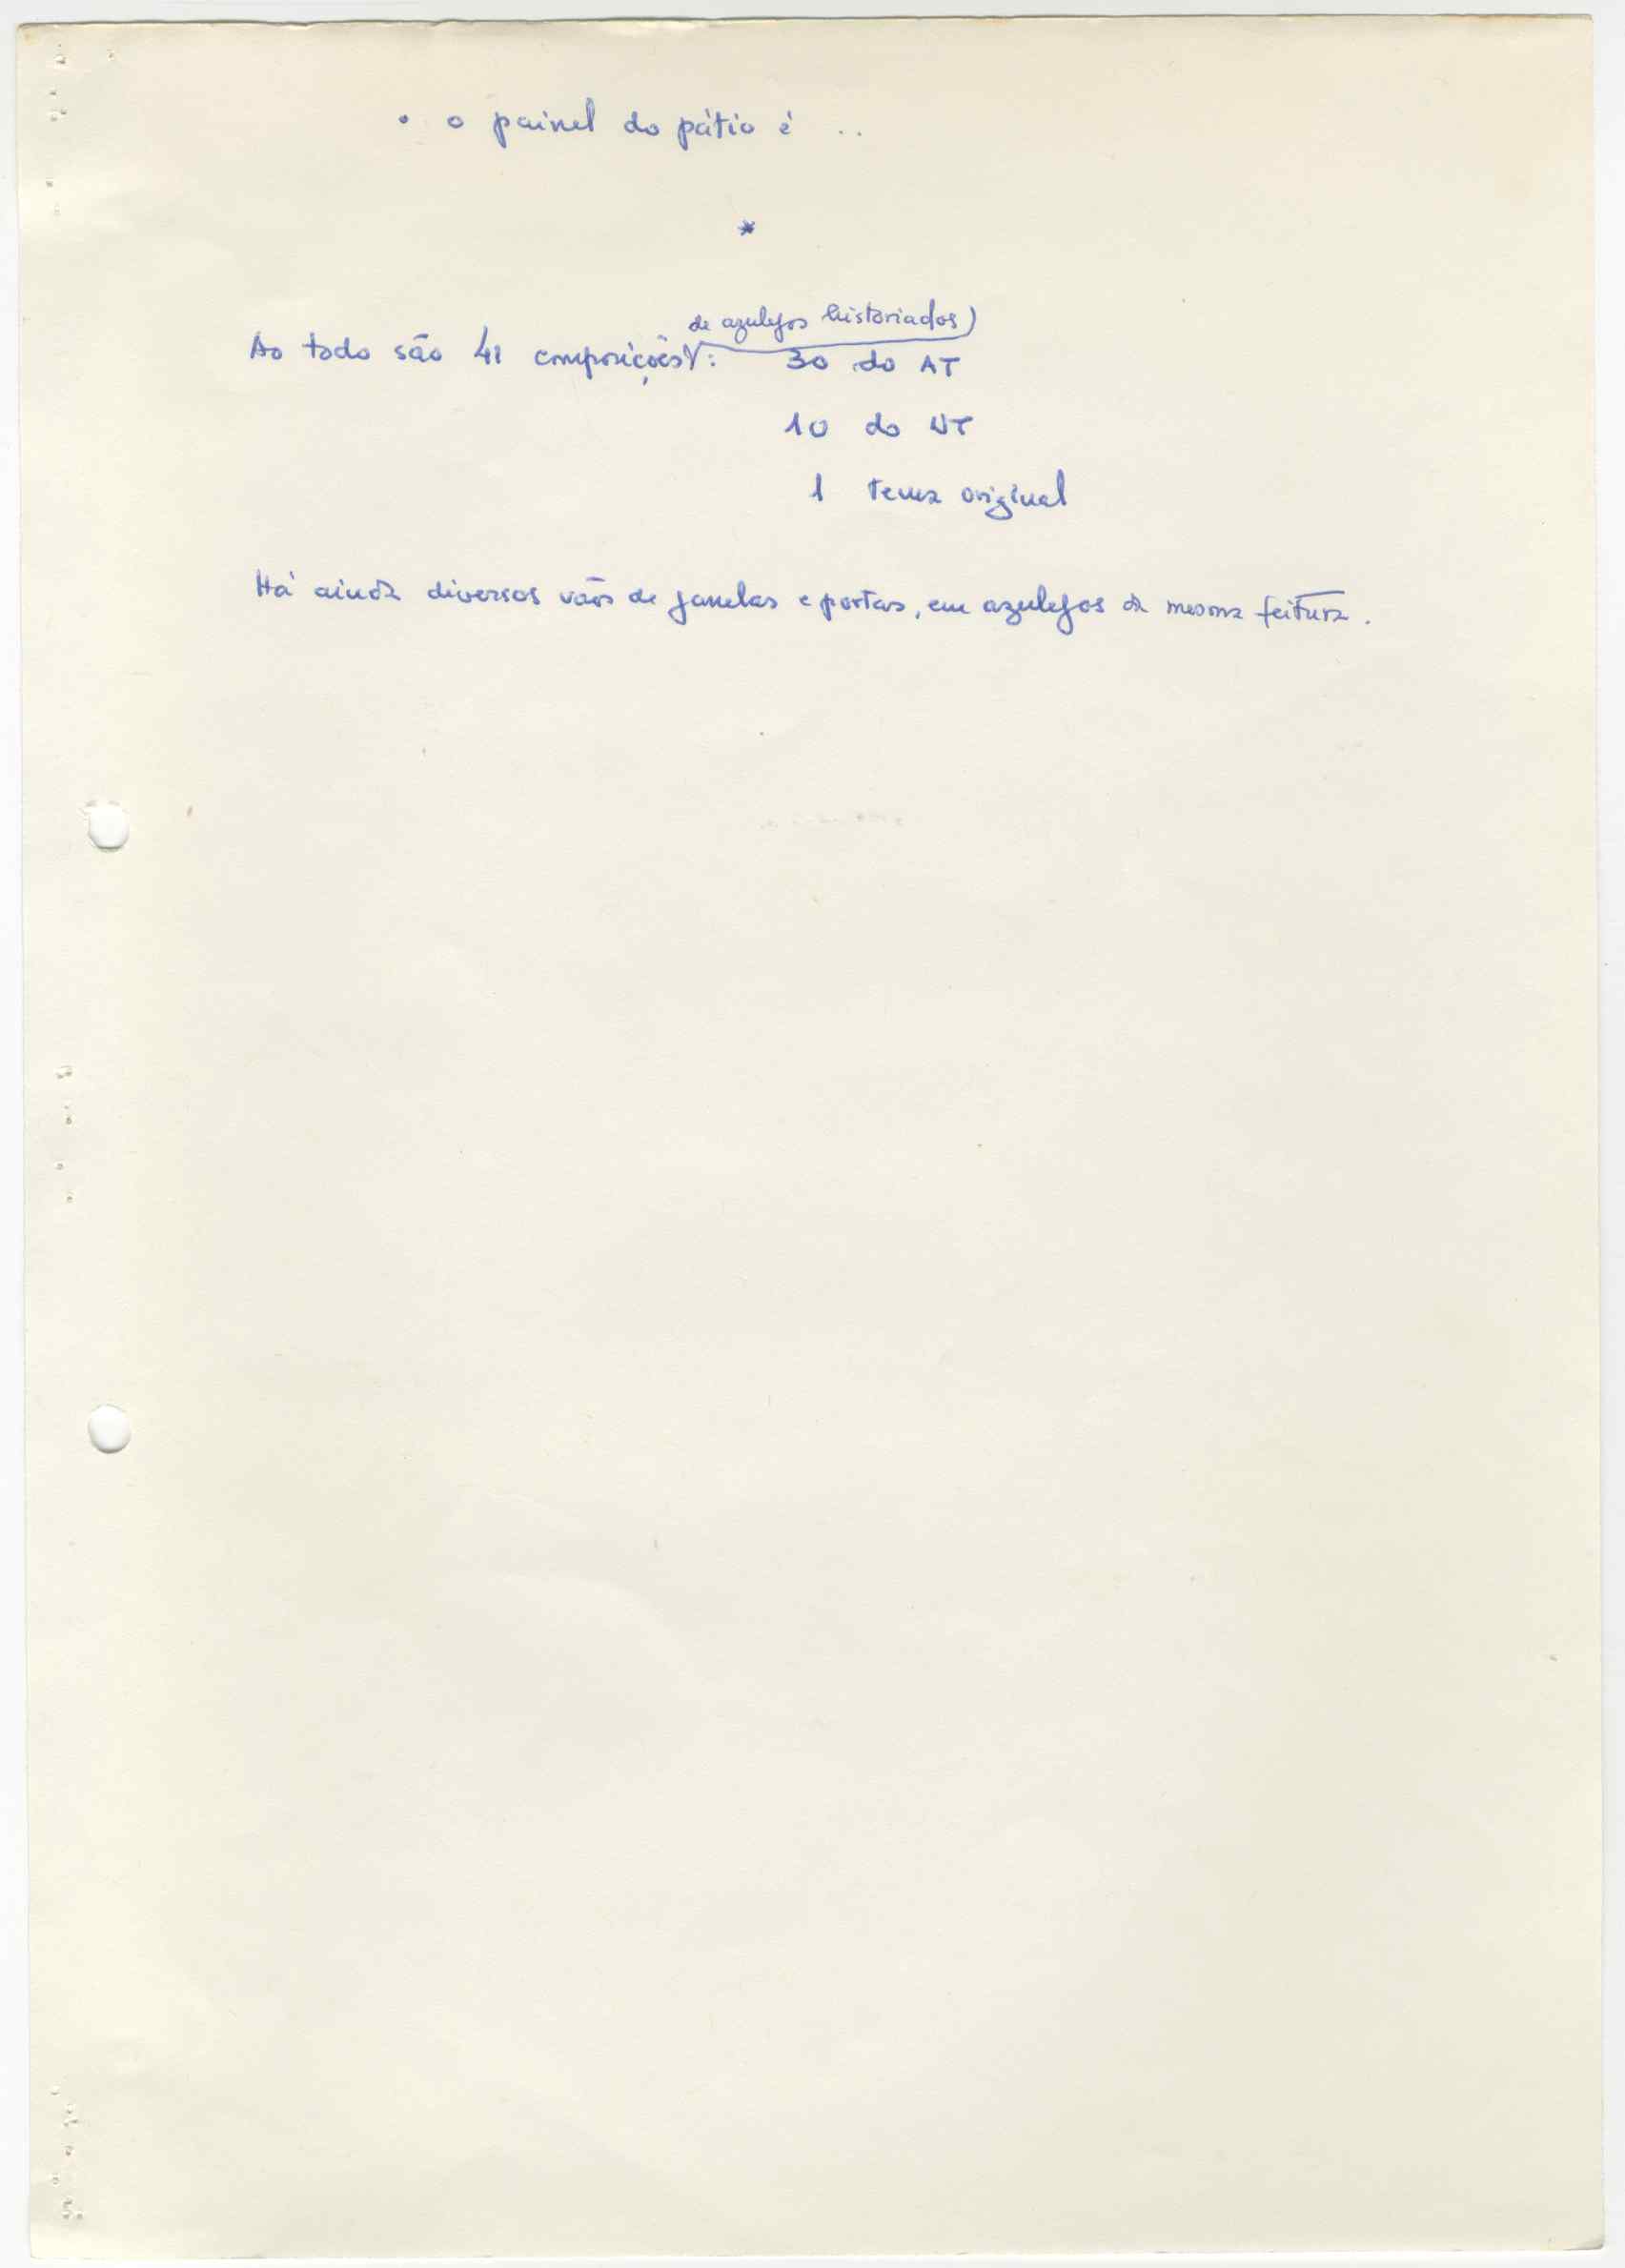 • o painel do pátio é ..
*
de azulejos historiados)
Ao todo são 41 composições: 30 do AT
10 do NT
1 tema original
Há ainda diversos vãos de janelas e portas, em azulejos da mesma feitura.